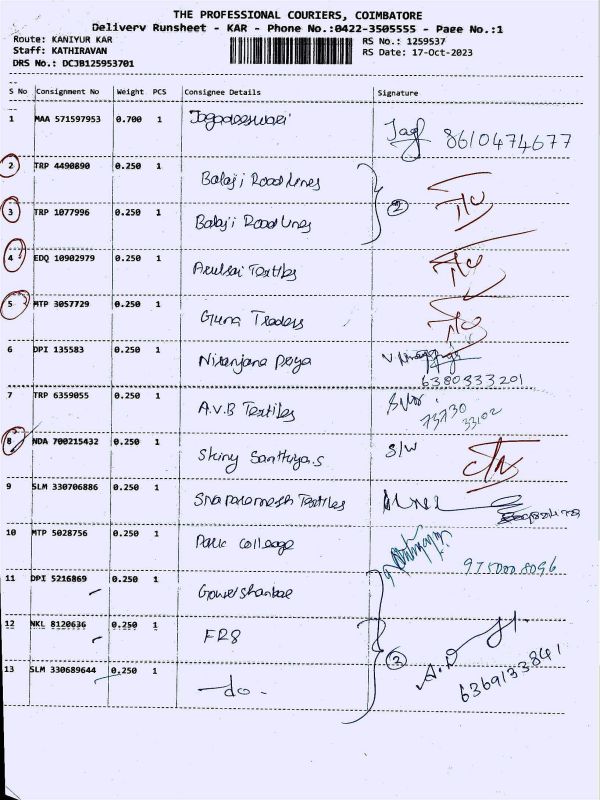 THE PROFESSIONAL COURIERS, COIMBATORE
Delivery Runsheet - KAR - Phone No.:0422-3505555 - Page No.:1
Route: KANIYUR KAR RS No.: 1259537
Staff: KATHIRAVAN RS Date: 17-Oct-2023
DRS No.: DCJB125953701
S No Consignment No Weight PCS Consignee Details Signature
1 MAA 571597953 0.700 1 Jagadeeswari Jagf 8610474677
2 TRP 4490890 0.250 1 Balaji Road Lines
3 TRP 1077996 0.250 1 Balaji Road Lines ②
4 EDQ 10902979 0.250 1 Arulsai Textiles
5 MTP 3057729 0.250 1 Guna Traders
6 DPI 135583 0.250 1 Niranjana Priya
6380333201
7 TRP 6359055 0.250 1 A.V.B Textiles 73730
33102
8 NDA 700215432 0.250 1 Shiny Santhiya.S S/W
9 SLM 330706886 0.250 1 Textiles
10 MTP 5028756 0.250 1 Park College 9750008096
11 DPI 5216869 0.250 1 Gowrishankar
12 NKL 8120636 0.250 1 FR8
13 SLM 330689644 0.250 1 - do - ③ A.D 6369133841